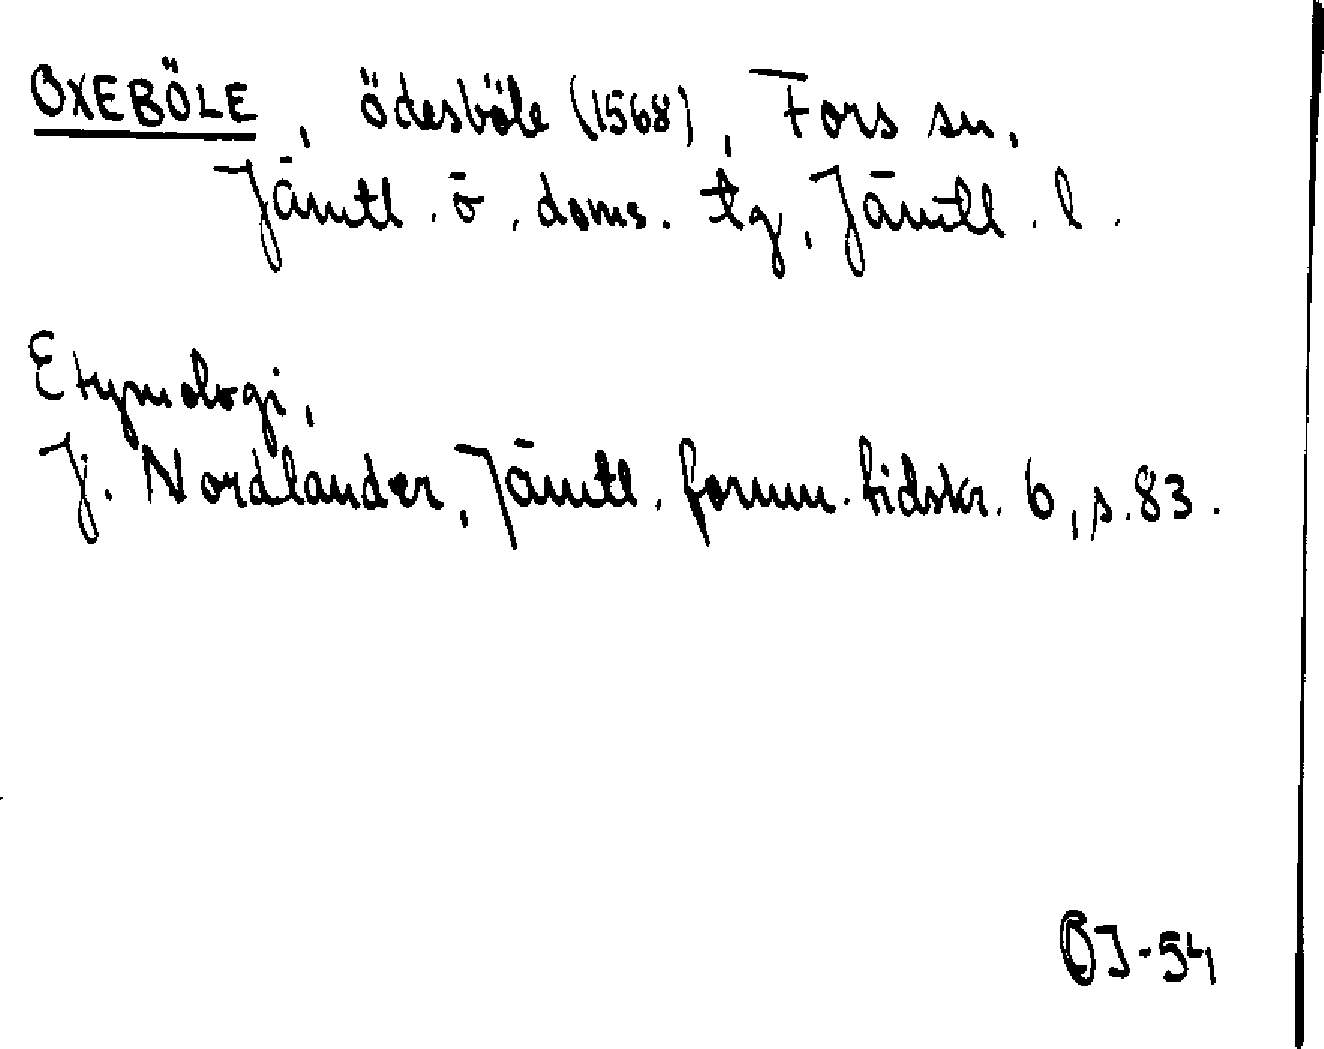 OXEBÖLE, ödesböle (1568), Fors sn,
Jämtl. ö. doms. tg, Jämtl. l.
Etymologi,
J. Nordlander, Jämtl. fornm. tidskr. 6, s. 83.
OJ-54